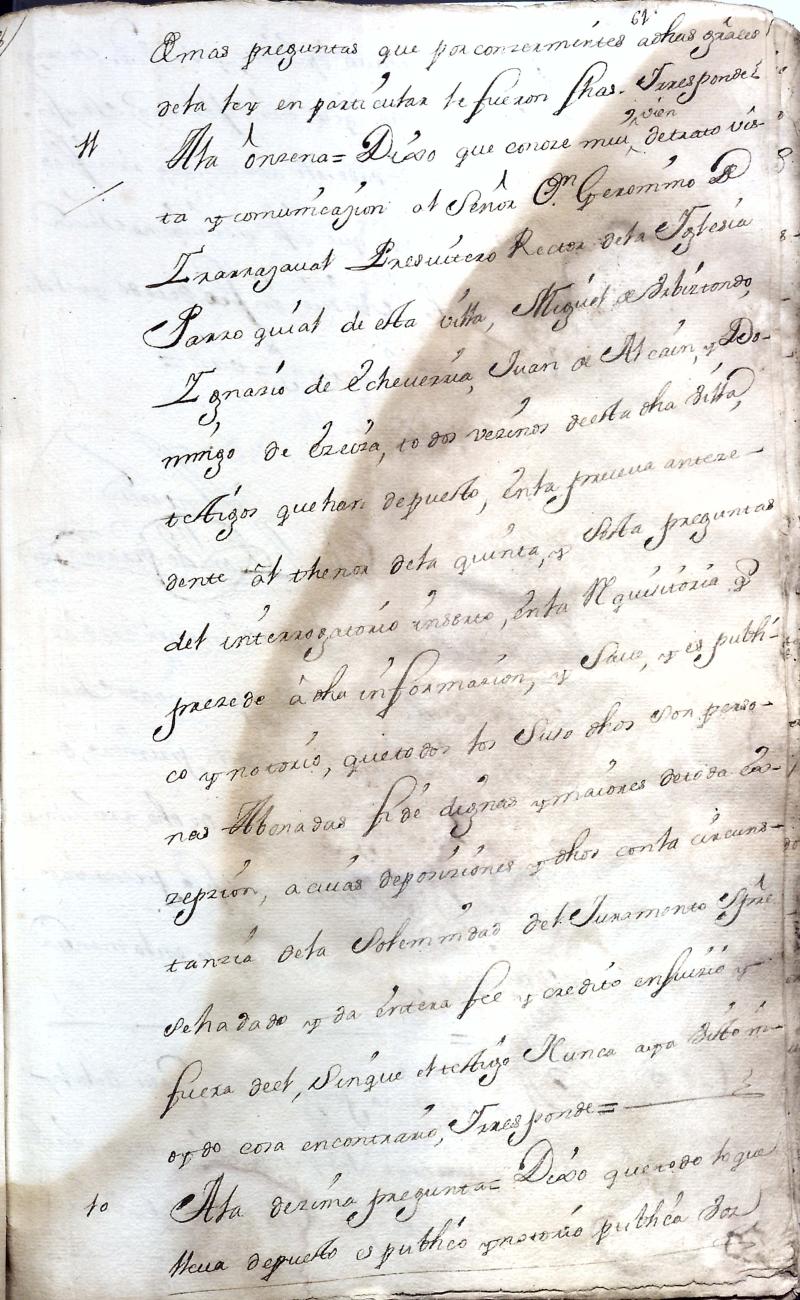 61
Demas preguntas que por conzernientes adhas grâles
dela ley en particular le fueron fhas. Yrresponde
11 Ala Onzena = Dixo que conoze mui vien detrato vis-
ta y comunicazion al Señor Dn. Geronimo de
Yrarrazaual Presuitero Rector dela Yglesia
Parroquial de esta villa, Miguel de Vrbiztondo,
Ygnazio de Echeuerria, Juan de Alcain, y Do-
mingo de Ezeiza, todos vezinos deesta dha Villa,
testigos quehan depuesto, enla prueua anteze-
dente âl thenor dela quinta, y Sesta preguntas
del interrogatorio inserto, enla Rquisitoria q̃
prezede â dha informazion, y Saue, y es publi-
co y notorio, quetodos los Suso dhos son perso-
nas Abonadas fidedignas y maiores detoda ex-
zepzion, a cuias deposiziones y dhos conla circuns-
tanzia dela Solemnidad del Juramento Spre
sehadado y da êntera fee y credito enjuizio y
fuera deel, Sinque eltestigo Nunca aya Visto ni
oydo cosa encontrario, Yrresponde =
10 Ala dezima pregunta = Dixo quetodo loque
lleua depuesto es publico ynotorio publica Voz